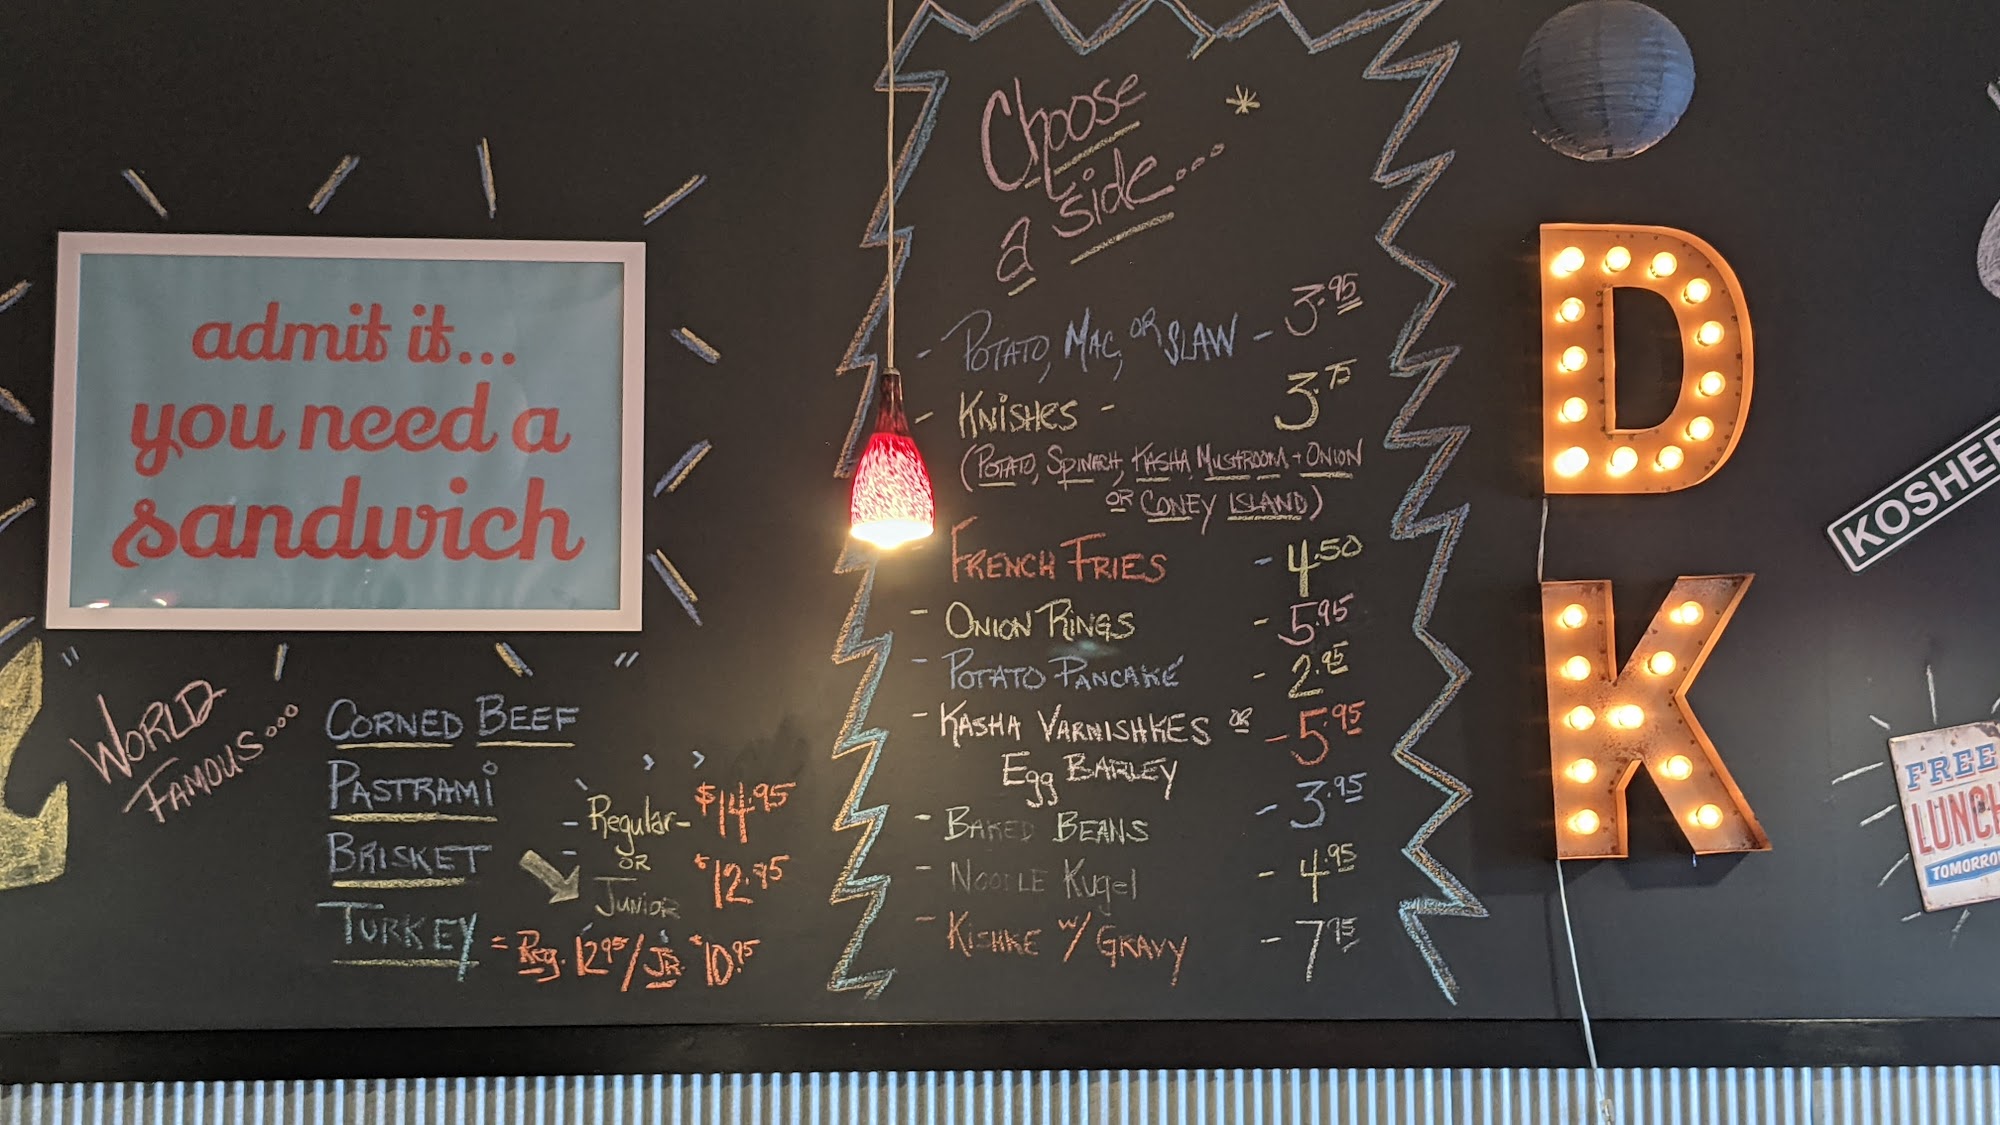 admit it...
you need a
sandwich
"World Famous..."
Corned Beef
Pastrami
Brisket
Regular - $14.95
or
Junior $12.95
Turkey = Reg. 12.95 / Jr. $10.95
Choose *
a side...
- Potato, Mac, or Slaw - 3.95
- Knishes - 3.75
(Potato, Spinach, Kasha, Mushroom + Onion
or Coney Island)
French Fries - 4.50
- Onion Rings - 5.95
- Potato Pancake - 2.95
- Kasha Varnishkes or - 5.95
Egg Barley
- Baked Beans - 3.95
- Noodle Kugel - 4.95
- Kishke w/ Gravy - 7.95
D
K
KOSHER
FREE
LUNCH
TOMORROW